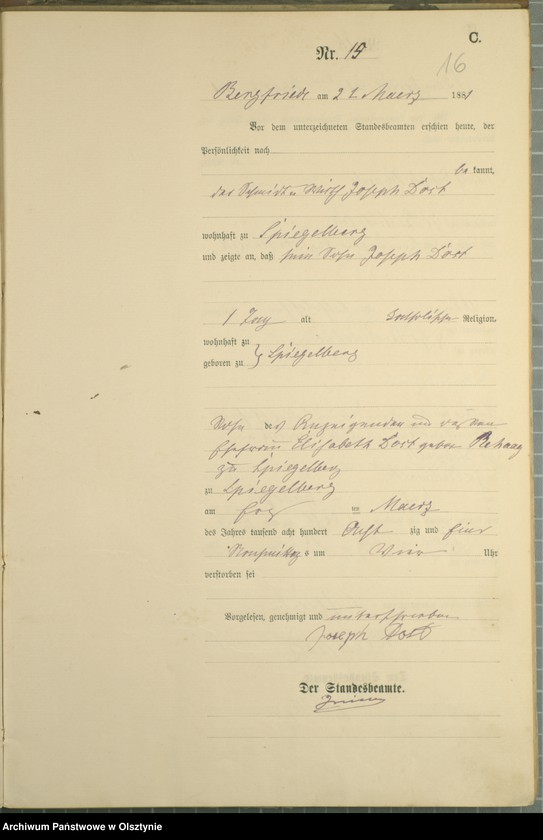 C.
Nr. 15
16
Bergfriede am 22 Maerz 1881
Vor dem unterzeichneten Standesbeamten erschien heute, der
Persönlichkeit nach
be kannt,
der Schmidt u Wirth Joseph Dost
wohnhaft zu Spiegelberg
und zeigte an, daß sein Sohn Joseph Dost
1 Tag alt katholischer Religion,
wohnhaft zu
geboren zu } Spiegelberg
Sohn des Anzeigenden und
Ehefrau Elisabeth Dost geboren Rehaag
zu Spiegelberg
zu Spiegelberg
am Maerz
des Jahres tausend acht hundert Acht zig und Eins
Nachmittag s um Vier Uhr
verstorben sei
Vorgelesen, genehmigt und unterschrieben
Joseph Dost
Der Standesbeamte.
Archiwum Państwowe w Olsztynie